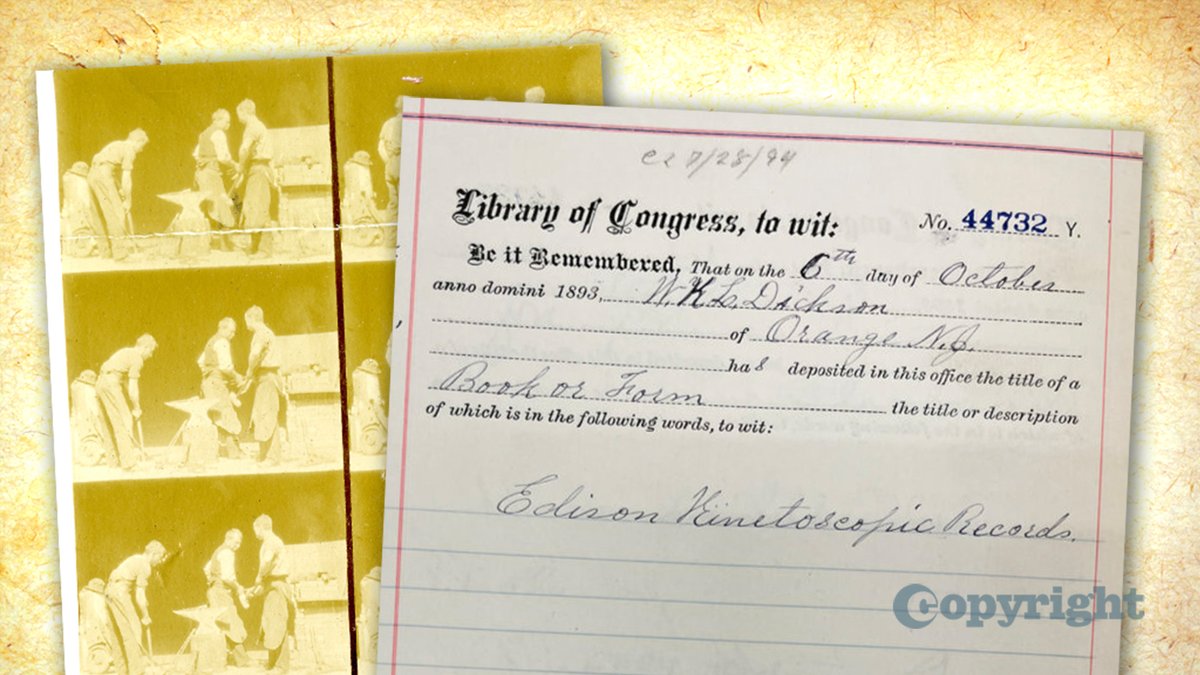 c2 7/28/94
Library of Congress, to wit: No. 44732 Y.
Be it Remembered, That on the 6th day of October
anno domini 1893, W.K.L. Dickson
of Orange N.J.
has deposited in this office the title of a
Book or Form the title or description
of which is in the following words, to wit:
Edison Kinetoscopic Records.
Copyright